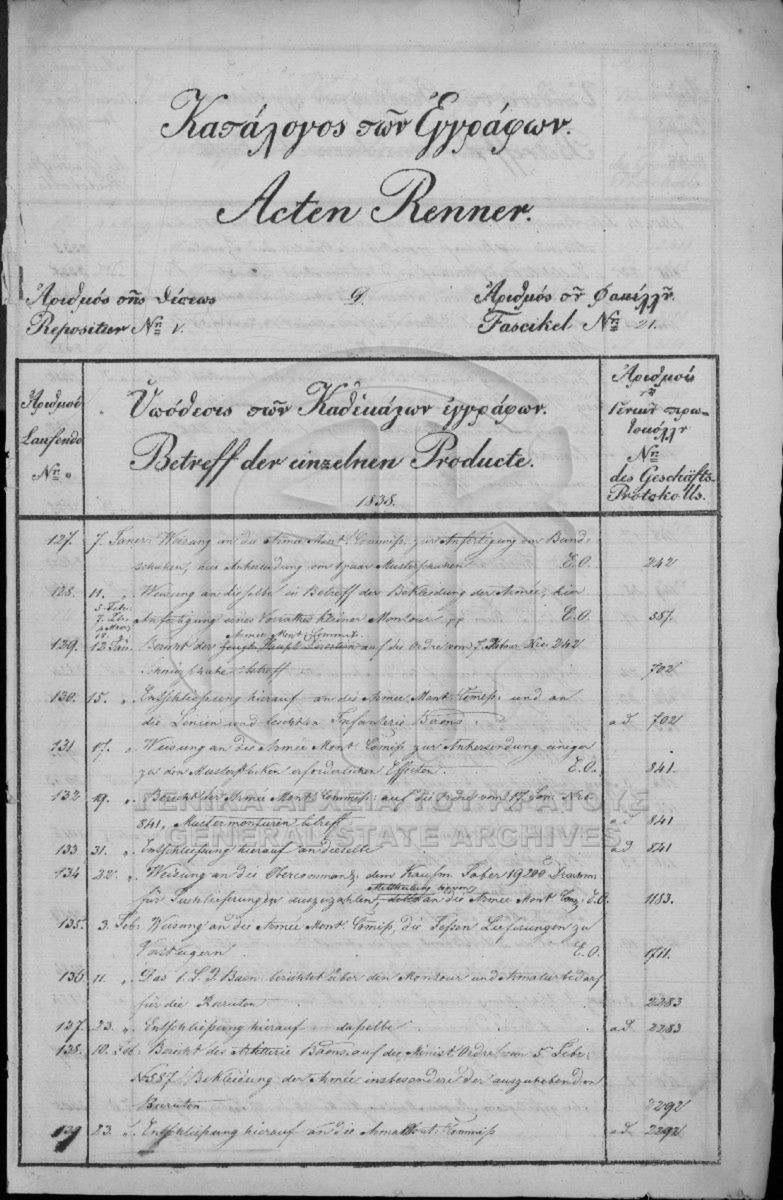 Κατάλογος τῶν Ἐγγράφων.
Acten Renner.
Ἀριθμός τῆς θέσεως 9. Ἀριθμός τοῦ Φακέλλου
Repositur Nro V. Fascikel Nro 21.
Ἀριθμοί
Laufende
Nro
Ὑπόθεσις τῶν Καθεκάστων ἐγγράφων.
Betreff der einzelnen Producte.
1838.
Ἀριθμοί
τοῦ
Γενικοῦ πρω-
τοκόλλου
Nro
des Geschäfts-
Protokolls.
127. 7. Janer: Weisung an die Armee Mont: Commiß: zur Anfertigung von Bund-
schuhen, aus Anwendung von 1 paar Musterschuhen E.O. 242
128. 11. „ Weisung an dieselbe in Betreff der Bekleidung der Armée, hier
5. Febr.
Anfertigung eines Vorrathes kleiner Montour pp E.O. 587.
Armée Mont: Commiß:
129. 12. Jän. Bericht der auf die Ordre vom 7. Nro 242
betreff 702
130. 15. „ Entschließung hierauf an die Armée Mont: Comiß: und an
die Linien und leichten Infanterie Baons. ad 702
131 17. „ Weisung an die Armée Mont: Comiß zur Anhersendung einiger
zu den Musterstücken erforderlichen Effecten. E.O. 841.
132 19. „ Bericht der Armée Mont: Commiß: auf die Ordre vom 17. Jan: Nro
841, Mustermonturen betreff. ad 841
133 31. „ Entschließung hierauf an dieselbe ad 841
134 22. „ Weisung an die Obercommand; dem Kaufm. Faber 19200 Drachm:
Mittheilung hievon
für Tuchlieferungen auszuzahlen, an die Armée Mont Comg: E.O. 1183.
135. 3. Feb: Weisung an die Armée Mont: Comiß, die Lieferungen zu
Versteigern E.O. 1711.
136 11. „ Das 1. L.I. Baon berichtet über den Montour und Armaturbedarf
für die Recruten 2283
137. 23. „ Entschließung hierauf an dasselbe ad 2283
138. 10. Feb. Bericht des Artillerie Baons, auf die Minist. Ordre vom 5. Febr:
No 587/ Bekleidung der Armée insbesondere der auszuhebenden
Recruten 2292
139 23. „ Entschließung hierauf an die Armée Mont: Commiß ad 2292
ΓΕΝΙΚΑ ΑΡΧΕΙΑ ΤΟΥ ΚΡΑΤΟΥΣ
GENERAL STATE ARCHIVES